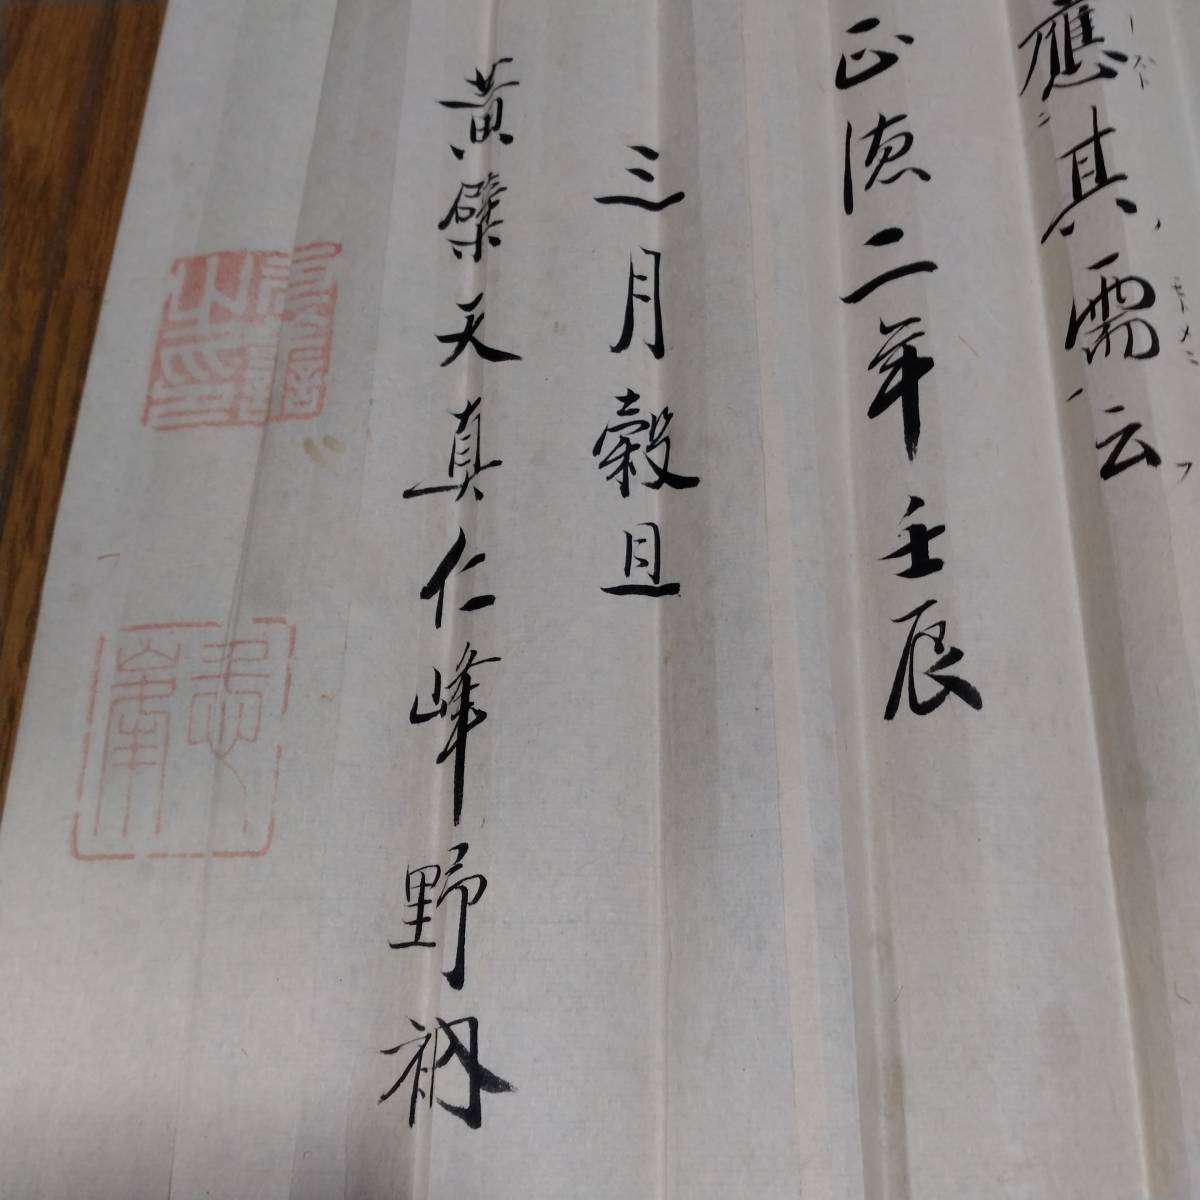 應其需云
正徳二年壬辰
三月穀旦
黃檗天真仁峰野衲